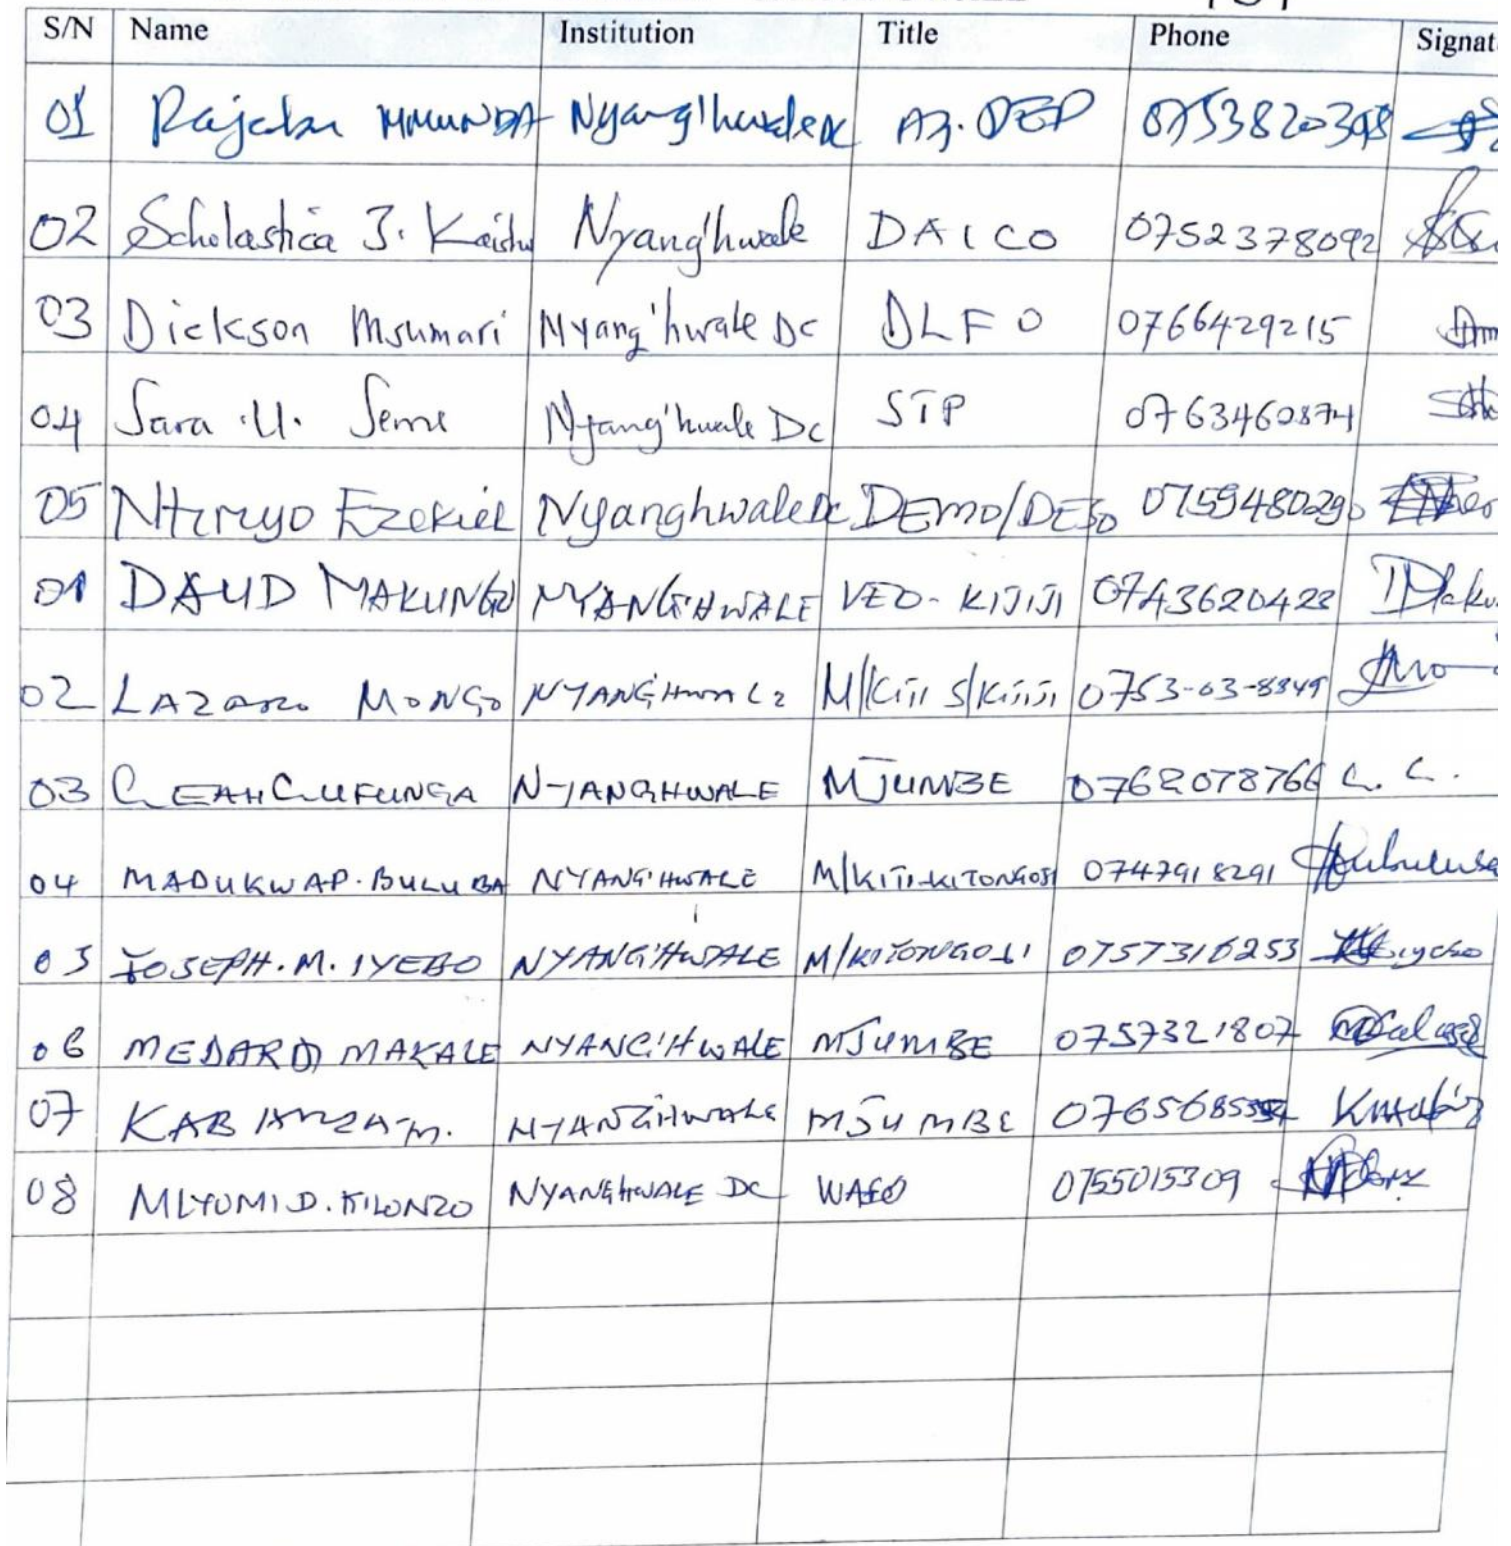 S/N Name Institution Title Phone Signat
01 Rajabu Nyang'hwale DC Ag. DED
02 Scholastica J. Nyang'hwale DAICO 0752378092
03 Dickson Msumari Nyang'hwale Dc DLFO 0766429215
04 Sara .U. Seme Nyang'hwale Dc STP 0763460874
05 Ntiruyo Ezekiel Nyanghwale Dc DEMO/DESO 0759480290
01 DAUD MAKUNGU NYANG'HWALE VEO-KIJIJI 0743620428
02 LAZARO MONGO NYANG'HWALE M/Kiti S/Kijiji 0753-03-8849
03 NYANGHWALE MJUMBE 0762078766 L. L.
04 MADUKWA P. BULUBA NYANG'HWALE M/KITI-KITONGOJI 0747918291
05 JOSEPH. M. IYEBO NYANG'HWALE M/KITONGOJI 0757316253
06 MEDARD MAKALE NYANG'HWALE MJUMBE 0757321807
07 M. NYANG'HWALE MJUMBE
08 MLYUMI D. KILONZO NYANG'HWALE DC WAEO 0755015309